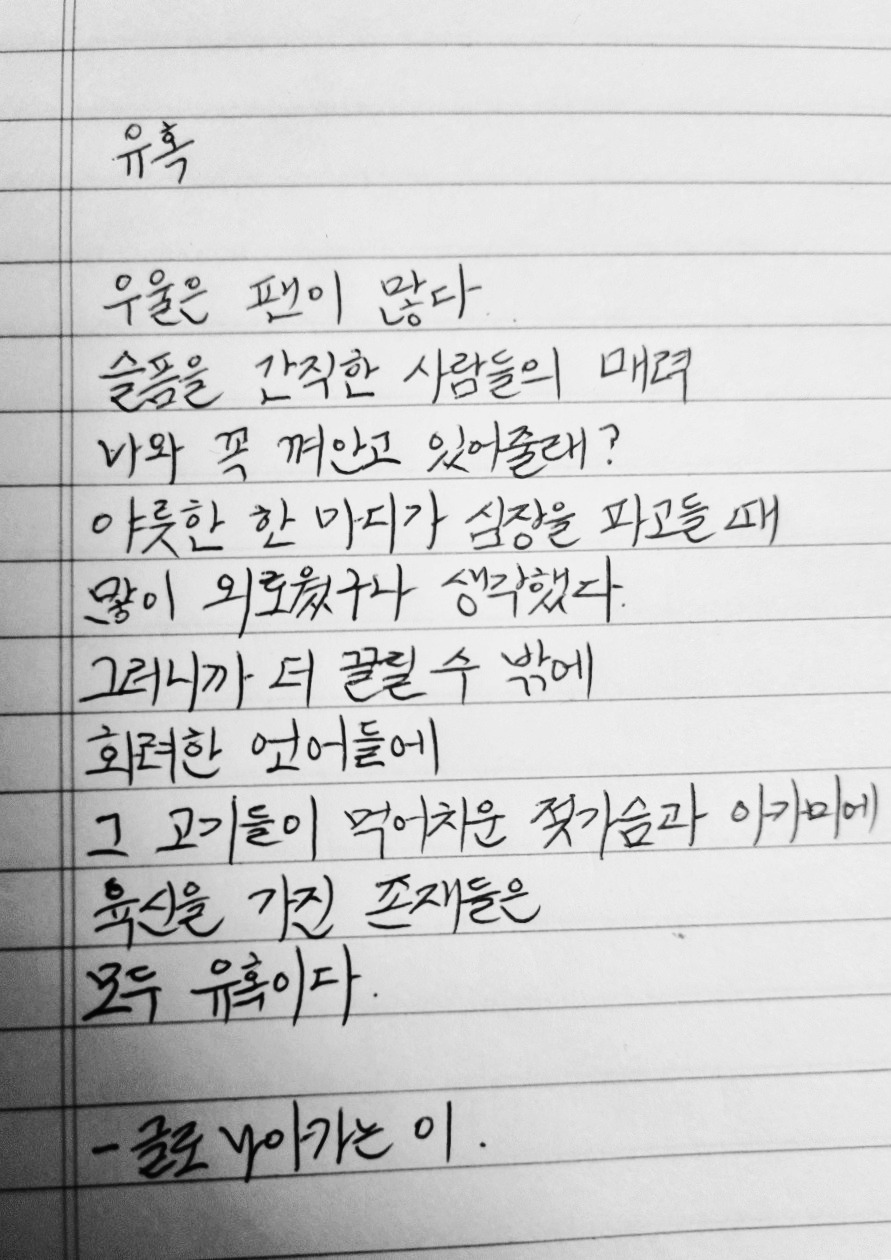 유혹
우울은 팬이 많다
슬픔을 간직한 사람들의 매력
나와 꼭 껴안고 있어줄래?
야릇한 한 마디가 심장을 파고들 때
많이 외로웠구나 생각했다.
그러니까 더 끌릴 수 밖에
화려한 언어들에
그 고기들이 먹어치운 젖가슴과 아가미에
육신을 가진 존재들은
모두 유혹이다.
- 글로 나아가는 이.